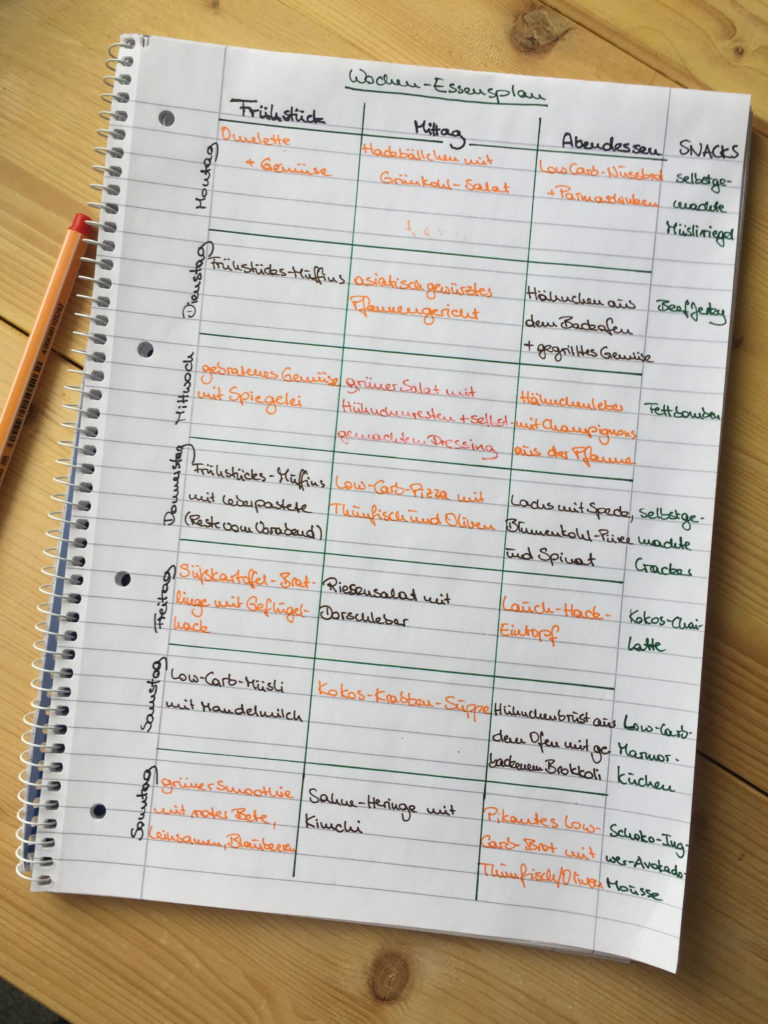 Wochen-Essensplan
Frühstück
Mittag
Abendessen
SNACKS
Montag
Omelette
+ Gemüse
Hackbällchen mit
Grünkohl-Salat
Low Carb-Nussbrot
+ Parmaschinken
selbstge-
machte
Müsliriegel
Dienstag
Frühstücks-Muffins
asiatisch gewürztes
Pfannengericht
Hähnchen aus
dem Backofen
+ gegrilltes Gemüse
Beef Jerky
Mittwoch
gebratenes Gemüse
mit Spiegelei
grüner Salat mit
Hühnchenresten + selbst-
gemachtem Dressing
Hähnchenleber
mit Champignons
aus der Pfanne
Fettbomben
Donnerstag
Frühstücks-Muffins
mit Leberpastete
(Reste vom Vorabend)
Low-Carb-Pizza mit
Thunfisch und Oliven
Lachs mit Speck,
Blumenkohl-Püree
und Spinat
selbstge-
machte
Cracker
Freitag
Süßkartoffel-Brat-
linge mit Geflügel-
hack
Riesensalat mit
Dorschleber
Lauch-Hack-
Eintopf
Kokos-Chai-
Latte
Samstag
Low-Carb-Müsli
mit Mandelmilch
Kokos-Krabben-Suppe
Hühnchenbrust aus
dem Ofen mit ge
backenem Brokkoli
Low-Carb-
Marmor-
kuchen
Sonntag
grüner Smoothie
mit roter Bete,
Leinsamen, Blaubeeren
Sahne-Heringe mit
Kimchi
Pikantes Low-
Carb-Brot mit
Thunfisch/Oliven
Schoko-Ing-
wer-Avokado-
Mousse